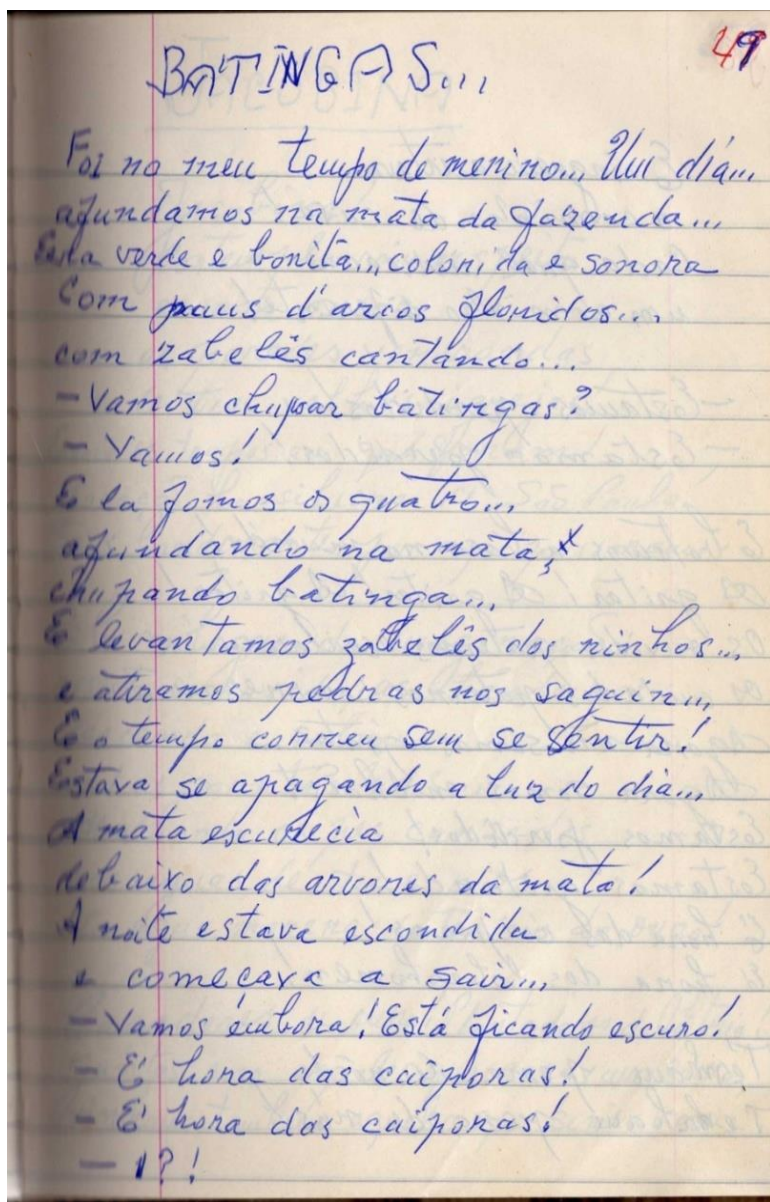 49
BATINGAS...
Foi no meu tempo de menino... Um dia...
afundamos na mata da fazenda...
Ela verde e bonita... colorida e sonora
Com paus d'arcos floridos...
com zabelês cantando...
- Vamos chupar batingas?
- Vamos!
E la fomos os quatro...
afundando na mata,
chupando batinga...
E levantamos zabelês dos ninhos...
e atiramos pedras nos saguin...
E o tempo correu sem se sentir!
Estava se apagando a luz do dia...
A mata escurecia
debaixo das arvores da mata!
A noite estava escondida
e começava a sair...
- Vamos émbora! Está ficando escuro!
- É hora das caiporas!
- É hora das caiporas!
- !?!